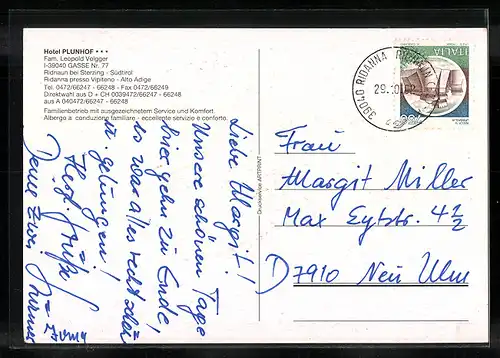 Hotel PLUNHOF ***
Fam. Leopold Volgger
I-39040 GASSE Nr. 77
Ridnaun bei Sterzing - Südtirol
Ridanna presso Vipiteno - Alto Adige
Tel. 0472/66247 - 66248 - Fax 0472/66249
Direktwahl aus D + CH 0039472/66247 - 66248
aus A 040472/66247 - 66248
Familienbetrieb mit ausgezeichnetem Service und Komfort
Albergo a conduzione familiare - eccellente servizio e conforto.
Druckservice ARTPRINT
39040 RIDANNA
29.10
ITALIA
Liebe Margit!
Unsere schönen Tage
hier gehn zu Ende,
es war alles recht schön
u. gelungen!
Herzl. Grüße
Deine zwei
Frau
Margit Miller
Max Eytstr. 4 1/2
D 7910 Neu Ulm